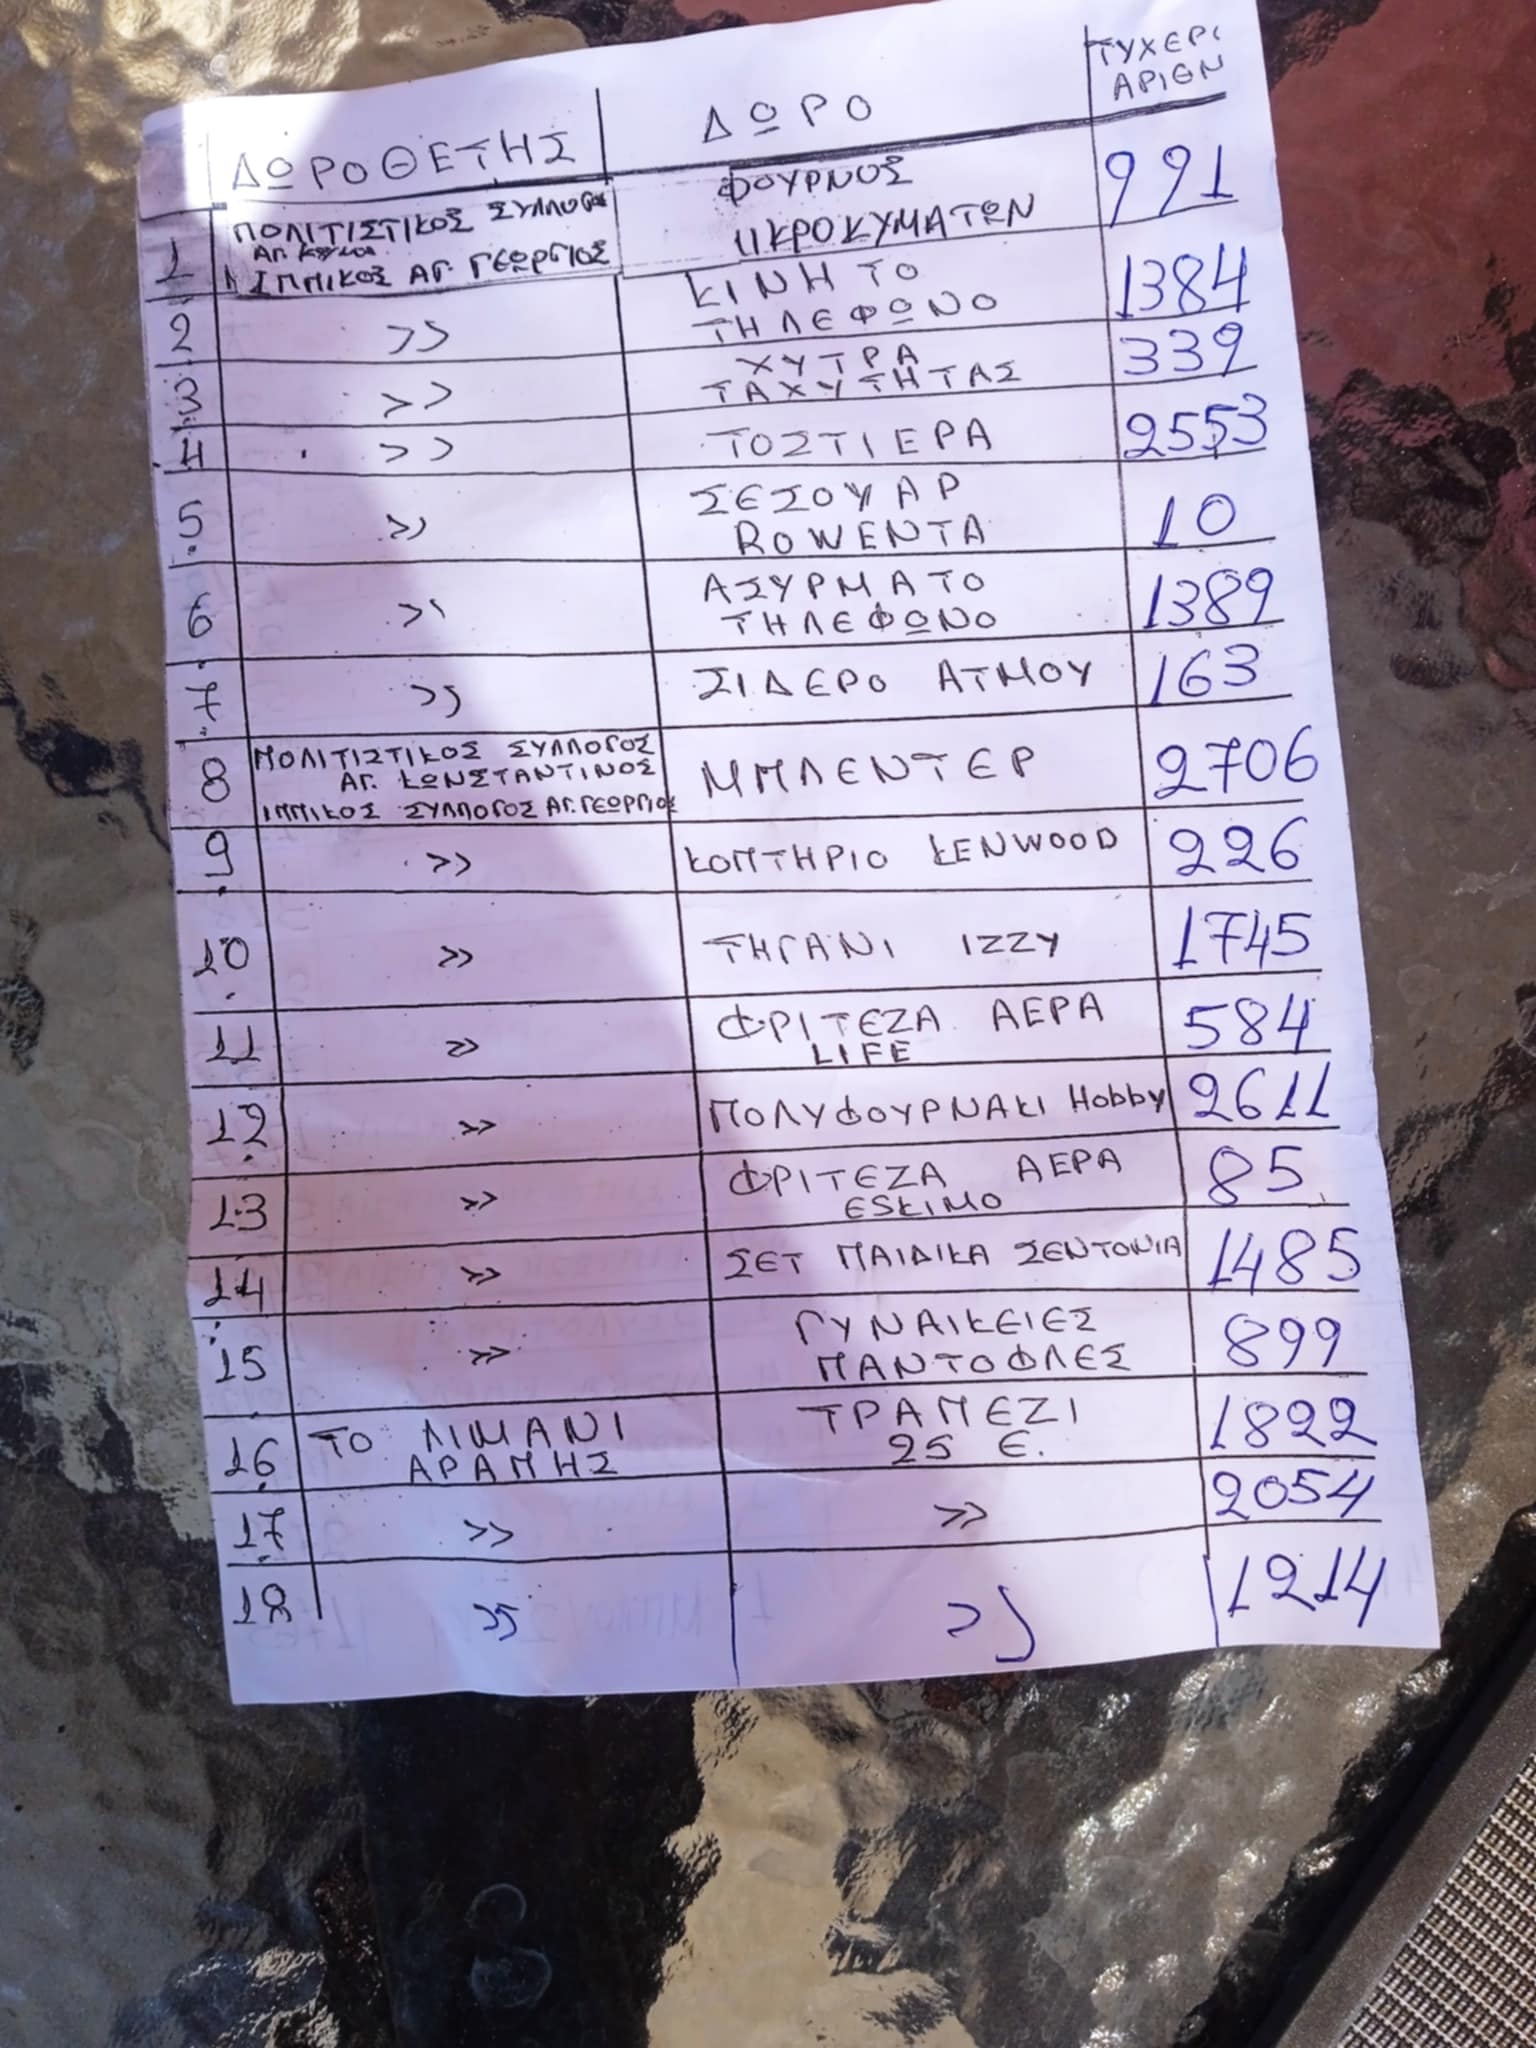 ΔΩΡΟΘΕΤΗΣ ΔΩΡΟ ΤΥΧΕΡΙ ΑΡΙΘΝ
1 ΠΟΛΙΤΙΣΤΙΚΟΣ ΣΥΛΛΟΓΟΣ ΦΟΥΡΝΟΣ 991
ΑΓ.
ΙΠΠΙΚΟΣ ΑΓ. ΓΕΩΡΓΙΟΣ ΜΙΚΡΟΚΥΜΑΤΩΝ
2 >> ΚΙΝΗΤΟ 1384
ΤΗΛΕΦΩΝΟ
3 >> ΧΥΤΡΑ 339
ΤΑΧΥΤΗΤΑΣ
4 >> ΤΟΣΤΙΕΡΑ 2553
5 >> ΣΕΣΟΥΑΡ 10
ROWENTA
6 >> ΑΣΥΡΜΑΤΟ 1389
ΤΗΛΕΦΩΝΟ
7 >> ΣΙΔΕΡΟ ΑΤΜΟΥ 163
8 ΠΟΛΙΤΙΣΤΙΚΟΣ ΣΥΛΛΟΓΟΣ ΜΠΛΕΝΤΕΡ 2706
ΑΓ. ΚΩΝΣΤΑΝΤΙΝΟΣ
ΙΠΠΙΚΟΣ ΣΥΛΛΟΓΟΣ ΑΓ. ΓΕΩΡΓΙΟΣ
9 >> ΚΟΠΤΗΡΙΟ KENWOOD 226
10 >> ΤΗΓΑΝΙ IZZY 1745
11 >> ΦΡΙΤΕΖΑ ΑΕΡΑ 584
LIFE
12 >> ΠΟΛΥΦΟΥΡΝΑΚΙ Hobby 2611
13 >> ΦΡΙΤΕΖΑ ΑΕΡΑ 85
ESKIMO
14 >> ΣΕΤ ΠΑΙΔΙΚΑ ΣΕΝΤΟΝΙΑ 1485
15 >> ΓΥΝΑΙΚΕΙΕΣ 899
ΠΑΝΤΟΦΛΕΣ
16 ΤΟ ΛΙΜΑΝΙ ΤΡΑΠΕΖΙ 1822
ΑΡΑΠΗΣ 25 Ε.
17 >> >> 2054
18 >> >> 1214